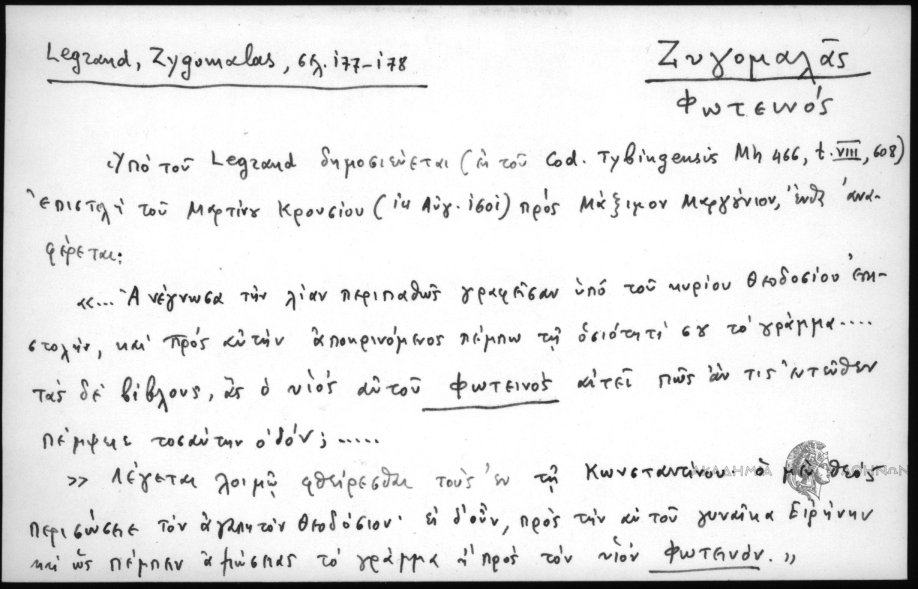 Legrand, Zygomalas, σελ. 177-178
Ζυγομαλᾶς
Φωτεινός
Ὑπό τοῦ Legrand δημοσιεύεται (ἐκ τοῦ Cod. Tybingensis Mh 466, t. VIII, 608)
Ἐπιστολή τοῦ Μαρτίνου Κρουσίου (14 Αὐγ. 1601) πρός Μάξιμον Μαργούνιον, ἔνθα ἀνα-
φέρεται:
«... Ἀνέγνωσα τήν λίαν περιπαθῶς γραφεῖσαν ὑπό τοῦ κυρίου Θεοδοσίου ἐπι-
στολήν, καί πρός αὐτήν ἀποκρινόμενος πέμπω τῇ ὁσιότητί σου τό γράμμα....
τάς δέ βίβλους, ἅς ὁ υἱός αὐτοῦ Φωτεινός αἰτεῖ πῶς ἄν τις ἐντεῦθεν
πέμψειε τοσαύτην ὁδόν; .....
>> Λέγεται λοιμῷ φθείρεσθαι τούς ἐν τῇ Κωνσταντίνου· ὁ μέν θεός
ΑΚΑΔΗΜΙΑ ΑΘΗΝΩΝ
περισώσειε τόν ἀγαπητόν Θεοδόσιον· εἰ δ' οὖν, πρός τήν αὐτοῦ γυναῖκα Εἰρήνην
καί ὥς πέμπειν ἀξιώσειας τό γράμμα ἤ πρός τόν υἱόν Φωτεινόν.»